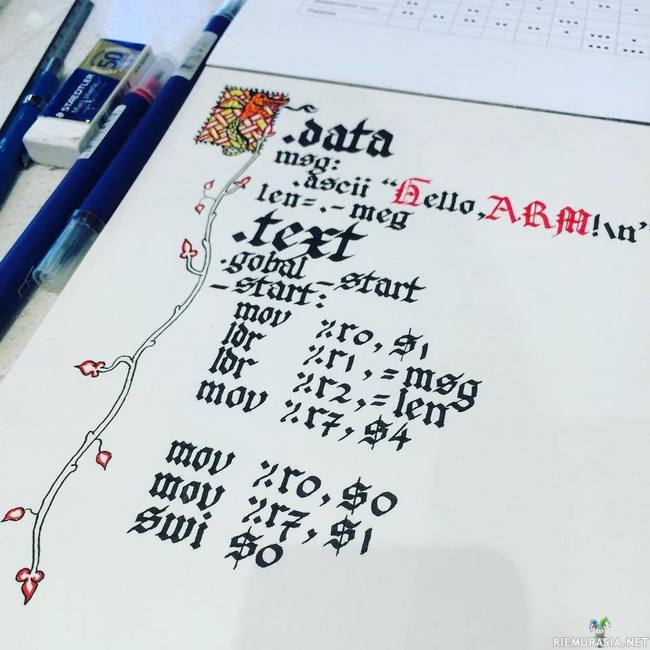 STAEDTLER
50
.data
msg:
.ascii "Hello, ARM!\n"
len=.-meg
.text
.gobal _start
_start:
mov %r0, $1
ldr %r1,=msg
ldr %r2,=len
mov %r7, $4
mov %r0, $0
mov %r7, $1
swi $0
RIEMURASIA.NET